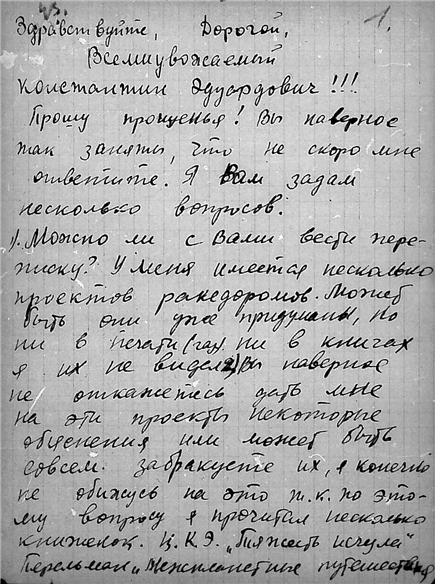 43. 1.
Здравствуйте, Дорогой,
Всемиуважаемый
Константин Эдуардович!!!
Прошу прощенья! Вы наверное
так заняты, что не скоро мне
ответите. Я Вам задам
несколько вопросов.
1). Можно ли с Вами вести пере-
писку? У меня имеется несколько
проектов ракедоромов. Может
быть они уже придуманы, но
ни в печати (газ) ни в книгах
я их не видел 2) Вы наверное
не откажетесь дать мне
на эти проекты некоторые
объяснения или может быть
совсем забракуете их, я конечно
не обижусь на это т.к. по это-
му вопросу я прочитал несколько
книженок. Ц.К.Э. „Тяжесть исчезла"
Перельман „Межпланетные путешествия